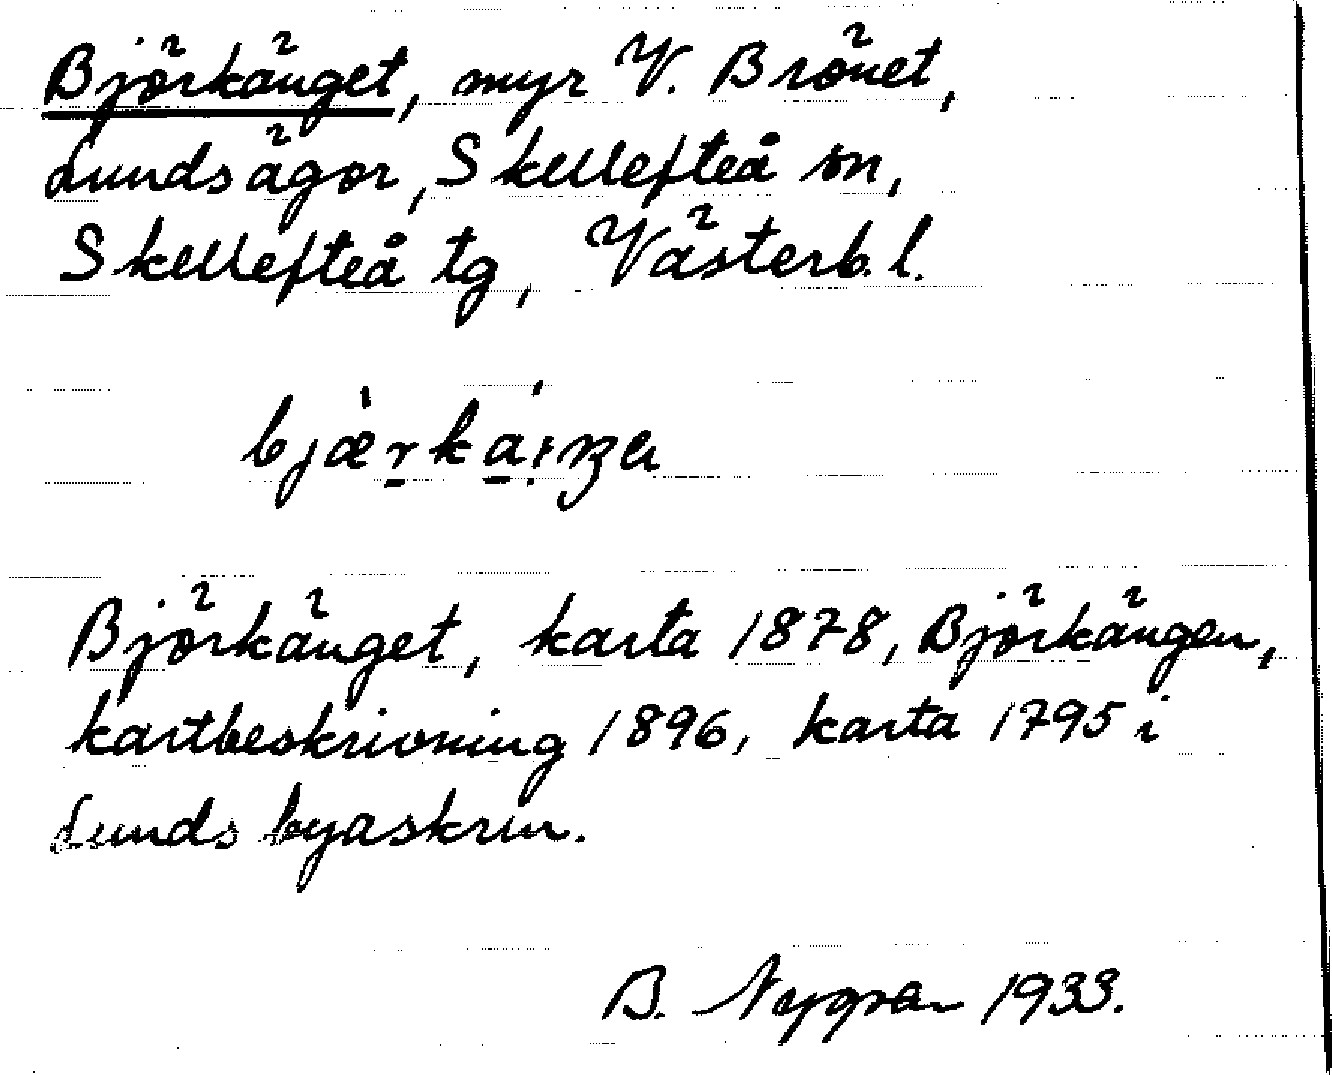 Björkänget, myr V. Brönet,
Lunds ägor, Skellefteå sn,
Skellefteå tg, Västerb. l.
Björkänget, karta 1878, Björkängen,
kartbeskrivning 1896, karta 1795 i
Lunds byaskrin.
B. Nygren 1933.